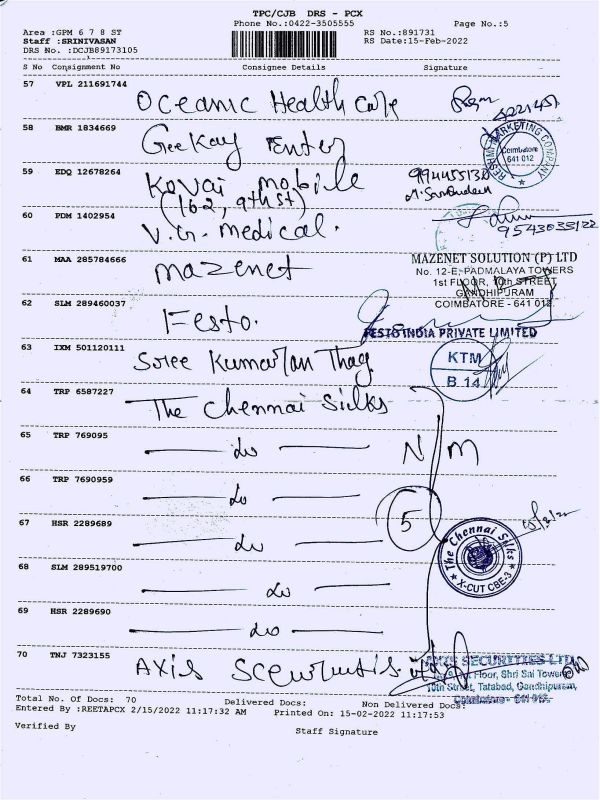 TPC/CJB DRS - PCX
Phone No.:0422-3505555 Page No.:5
Area :GPM 6 7 8 ST RS No.:891731
Staff :SRINIVASAN RS Date:15-Feb-2022
DRS No. :DCJB89173105
S No Consignment No Consignee Details Signature
57 VPL 211691744 Oceanic Health Care
58 BMR 1834669 GeeKay Enter
RESHMI MARKETING COMPANY
Coimbatore
641 012
59 EDQ 12678264 Kovai mobile
(162, 9th St)
60 PDM 1402954 V.G. medical.
61 MAA 285784666 mazenet
MAZENET SOLUTION (P) LTD
No. 12-E, PADMALAYA TOWERS
1st FLOOR, 10th STREET
GANDHIPURAM
COIMBATORE - 641 012.
62 SLM 289460037 Festo.
FESTO INDIA PRIVATE LIMITED
63 IXM 501120111 Sree Kumaran Thag
KTM
B.14
64 TRP 6587227 The Chennai Silks
65 TRP 769095 do N M
66 TRP 7690959 do
5
67 HSR 2289689 do
The Chennai Silks
X-CUT CBE-3
68 SLM 289519700 do
69 HSR 2289690 do
70 TNJ 7323155 Axis Securities
AXIS SECURITIES LTD
Floor, Shri Sai Towers
10th Street, Tatabad, Gandhipuram,
Coimbatore - 641 012.
Total No. Of Docs: 70 Delivered Docs: Non Delivered Docs:
Entered By :REETAPCX 2/15/2022 11:17:32 AM Printed On: 15-02-2022 11:17:53
Verified By Staff Signature